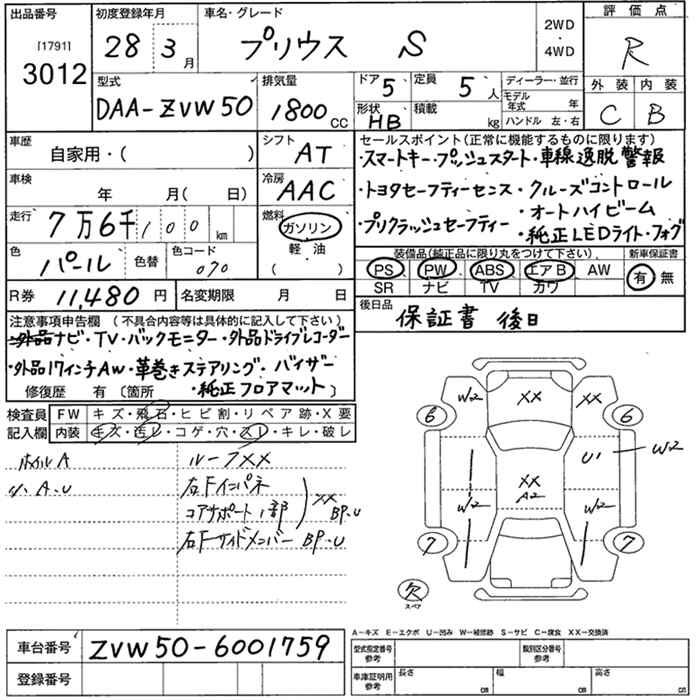 出品番号 初度登録年月 車名・グレード 2WD・4WD 評価点
[1791] 3012 28 3月 プリウス S R
型式 排気量 ドア 5 定員 5人 ディーラー・並行 外装 内装
DAA-ZVW50 1800cc 形状 HB 積載 kg モデル年式 年 ハンドル 左・右 C B
車歴 シフト セールスポイント(正常に機能するものに限ります)
自家用・( ) AT ・スマートキー・プッシュスタート・車線逸脱警報
車検 冷房 ・トヨタセーフティーセンス・クルーズコントロール
年 月( 日) AAC ・オートハイビーム
走行 7万6千100km 燃料 ガソリン ・プリクラッシュセーフティー
軽油 ・純正LEDライト・フォグ
色 パール 色替 色コード 070 ( )
装備品(純正品に限り丸をつけて下さい) 新車保証書
PS PW ABS エアB AW 有 無
SR ナビ TV カワ
R券 11,480円 名変期限 月 日
後日品 保証書 後日
注意事項申告欄 (不具合内容等は具体的に記入して下さい)
外品ナビ・TV・バックモニター・外品ドライブレコーダー
・外品17インチAW・革巻きステアリング・バイザー
修復歴 有 〔箇所 〕 ・純正フロアマット
検査員記入欄 FW キズ・飛石・ヒビ割・リペア跡・X要
内装 キズ・汚レ・コゲ・穴・スレ・キレ・破レ
ホイルA ルーフXX
小A.U 右Fインパネ
コアサポート1部 XX BP.U
右Fサイドメンバー BP.U
W2 XX XX
6 6
U1 W2
XX
A2
W2 W2
7 7
欠
スペア
A−キズ E−エクボ U−凹み W−補修跡 S−サビ C−腐食 XX−交換済
車台番号 ZVW50-6001759
登録番号
型式指定番号 参考 類別区分番号 参考
車庫証明用 参考 長さ cm 幅 cm 高さ cm